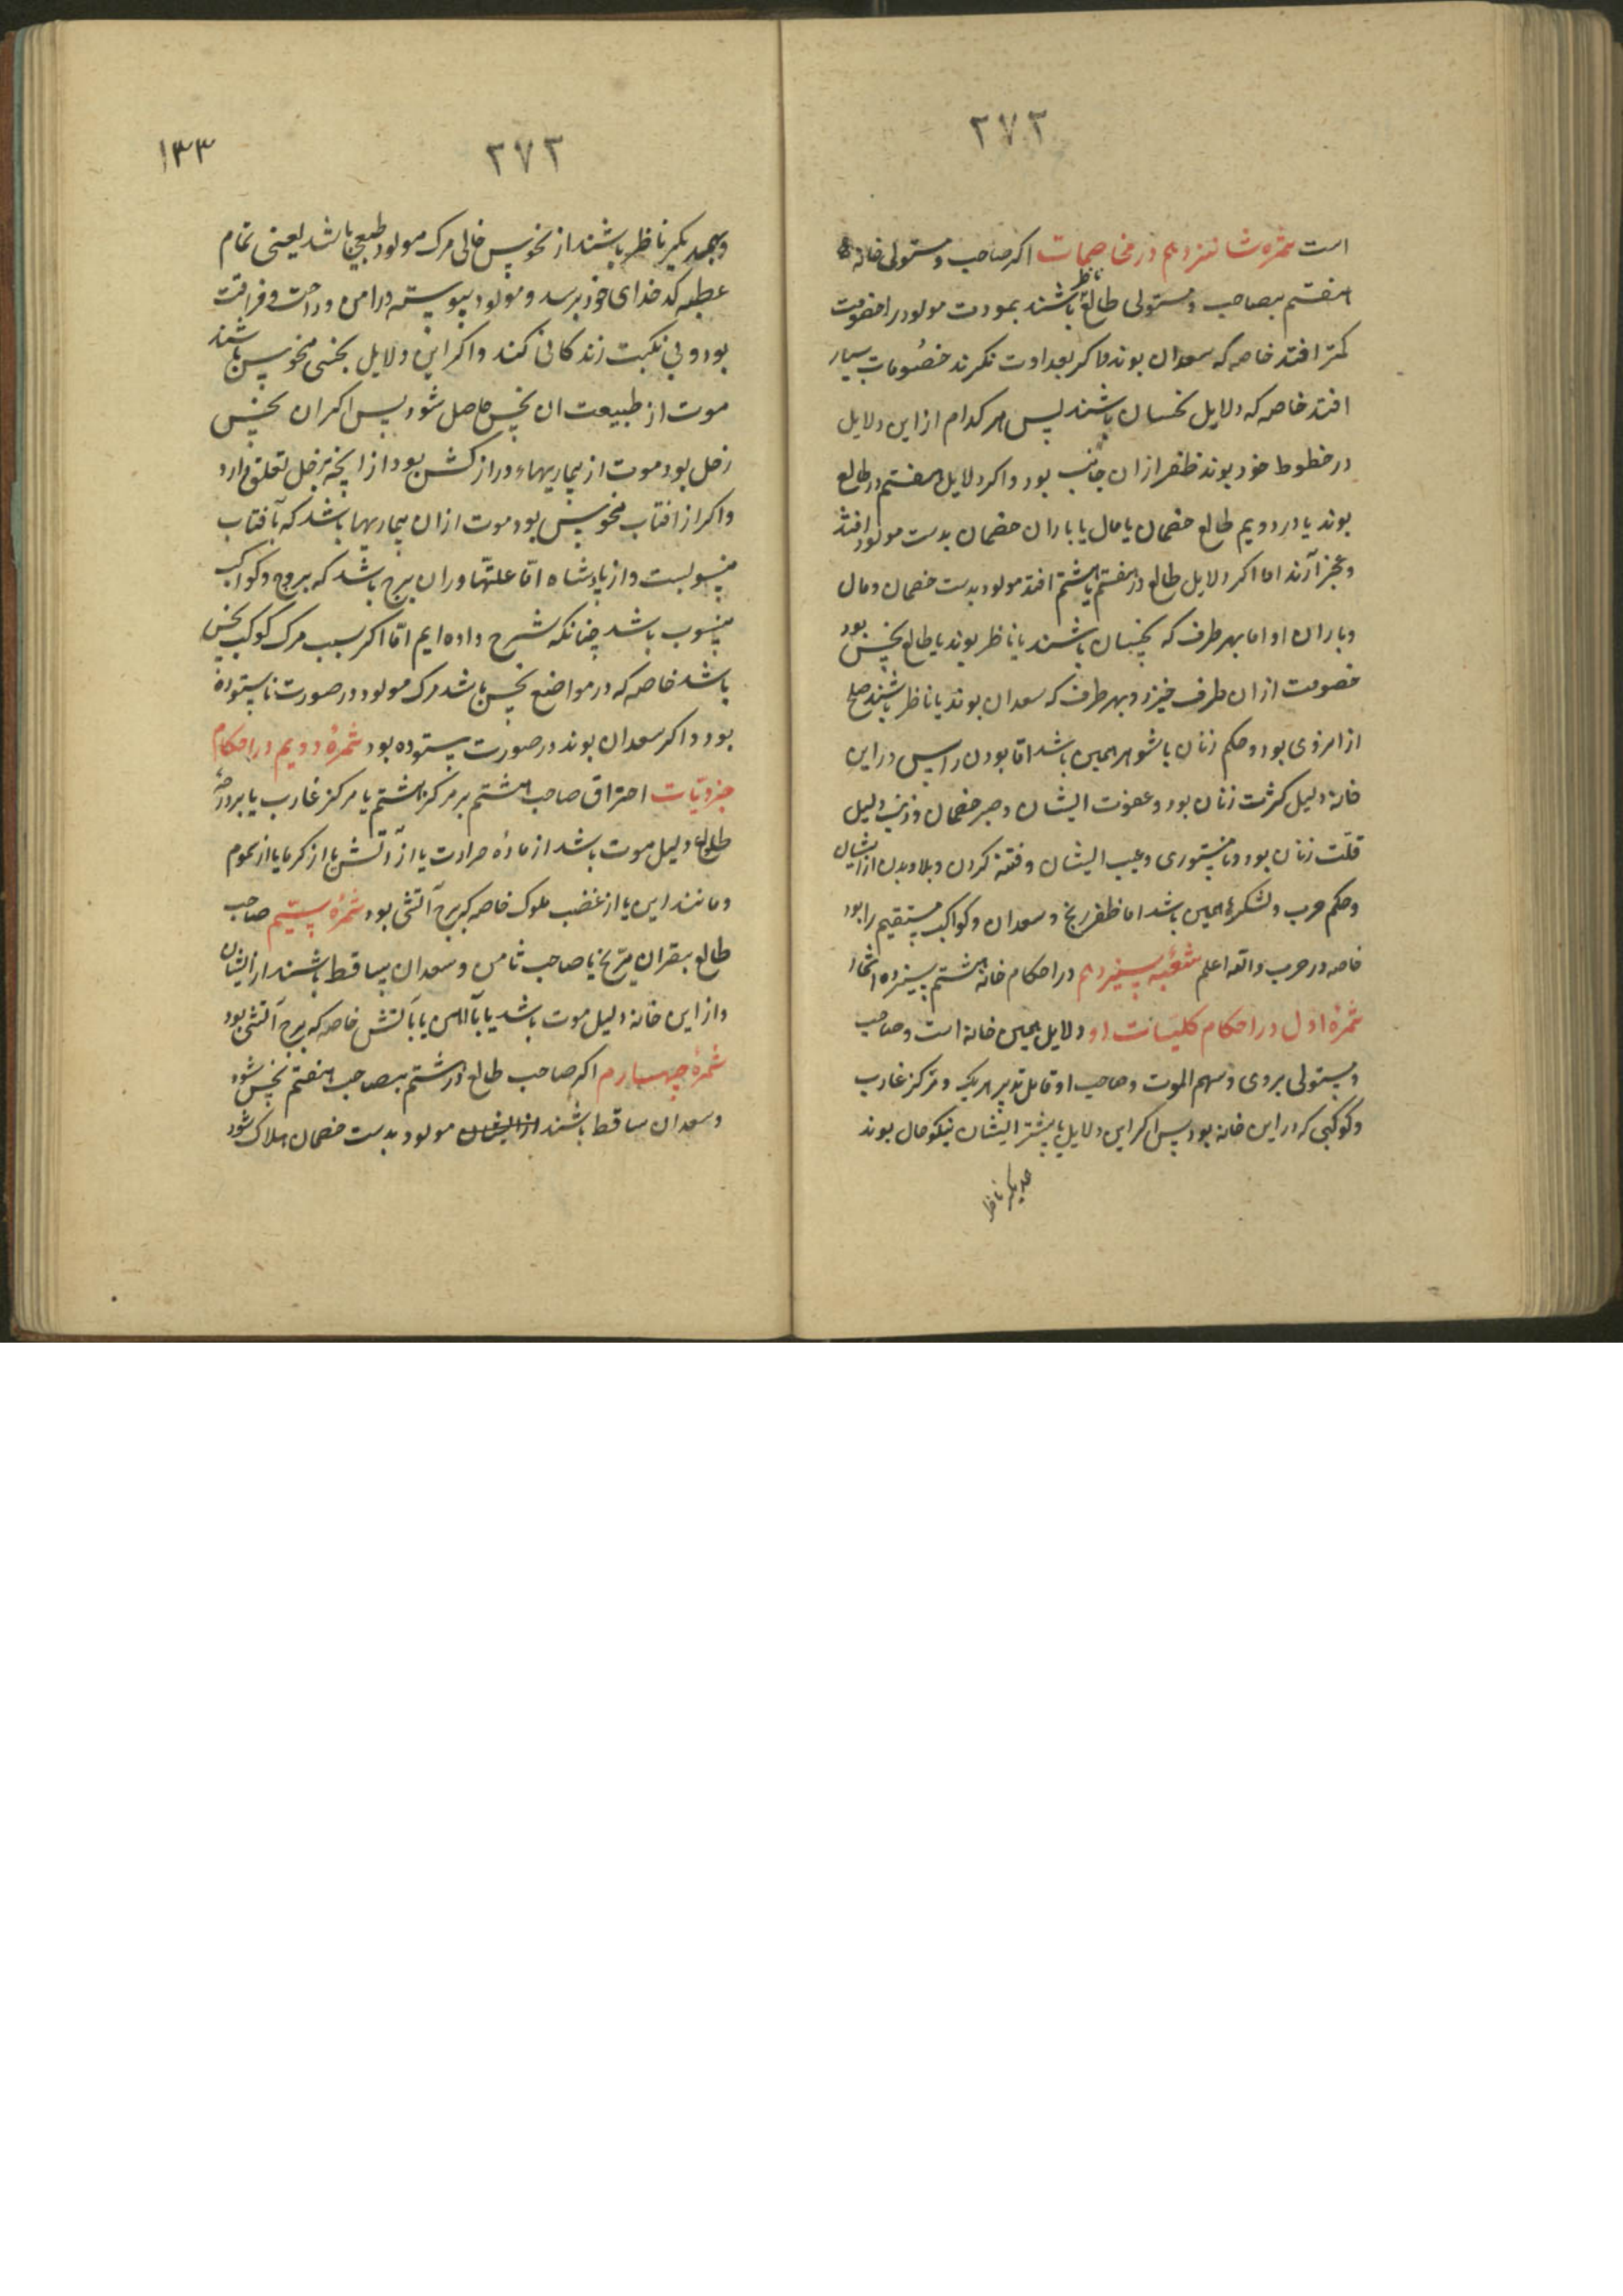 ٢٧٢
است ثمره شانزدهم در مخاصمات اکر صاحب و مستولی خانهٔ
هفتم بصاحب و مستولی طالع ناظر باشند بمودت مولود را خصومت
کمتر افتد خاصه که سعدان بوند و اکر بعداوت نکرند خصومات بسیار
افتد خاصه که دلایل نحسان باشند پس هر کدام از این دلایل
در حظوظ خود بوند ظفر از ان جانب بود و اکر دلایل هفتم در طالع
بوند یا در دویم طالع خصمان یا مال یا یاران خصمان بدست مولود افتد
و عجز آرند اما اکر دلایل طالع در هفتم یا هشتم افتد مولود بدست خصمان و مال
و یاران او اما بهر طرف که نحسان باشند یا ناظر بوند یا طالع نحس بود
خصومت از ان طرف خیزد و بهر طرف که سعدان بوند یا ناظر باشند صلح
از امروی بود و حکم زنان با شوهر همین باشد امّا بودن راس در این
خانه دلیل کثرت زنان بود و عفونت ایشان و صبر خصمان و ذنب دلیل
قلّت زنان بود و نامستوری و عیب ایشان و فتنه کردن و بلا دیدن از ایشان
و حکم حرب و لشکرها همین باشد اما ظفر مریخ و سعدان و کواکب مستقیم را بود
خاصه در حرب والله اعلم شعبه سیزدهم در احکام خانهٔ هشتم بسیزده
ثمرهٔ اول در احکام کلیات او دلایل همین خانه است و صاحب
و مستولی بروی و سهم الموت و صاحب او و قابل تدبیر هر یک و مرکز غارب
و کوکبی که در این خانه بود پس اکر این دلایل یا بیشتر ایشان نیکو حال بوند
ناظر
٢٧٣
١٣٣
و بهمدیکر ناظر باشند از نحوس خالی مرک مولود طبیعی باشد یعنی تمام
عطیه کدخدای خود برسد و مولود پیوسته در امن و راحت و فراغت
بود و بی نکبت زندکانی کند و اکر این دلایل بنحسی منحوس باشند
موت از طبیعت ان نحس حاصل شود پس اکر ان نحس
زحل بود موت از بیماریهاء دراز کشن بود از انچه بزحل تعلق دارد
و اکر از افتاب منحوس بود موت از ان بیماریها باشد که بآفتاب
منسوبست و از پادشاه امّا علتها و ران برج باشد که بروج و کواکب
منسوب باشد چنانکه شرح داده ایم امّا اکر سبب مرک کوکب نحس
باشد خاصه که در مواضع نحس باشد مرک مولود در صورت ناستوده
بود و اکر سعدان بوند در صورت ستوده بود ثمرهٔ دویم در احکام
جزویّات احتراق صاحب هشتم بر مرکز هشتم یا مرکز غارب یا بر درجهٔ
طالع دلیل موت باشد از مادهٔ حرارت یا از آتش یا از کرما یا از سموم
و مانند این یا از غضب ملوک خاصه که برج آتشی بود ثمرهٔ سیّم صاحب
طالع بقران مرّیخ یا صاحب ثامن و سعدان ساقط باشند از ایشان
و از این خانه دلیل موت باشد یا بآهن یا بآتش خاصه که برج آتشی بود
ثمرهٔ چهارم اکر صاحب طالع در هشتم بصاحب هفتم نحس شود
و سعدان ساقط باشند از ایشان مولود بدست خصمان هلاک شود